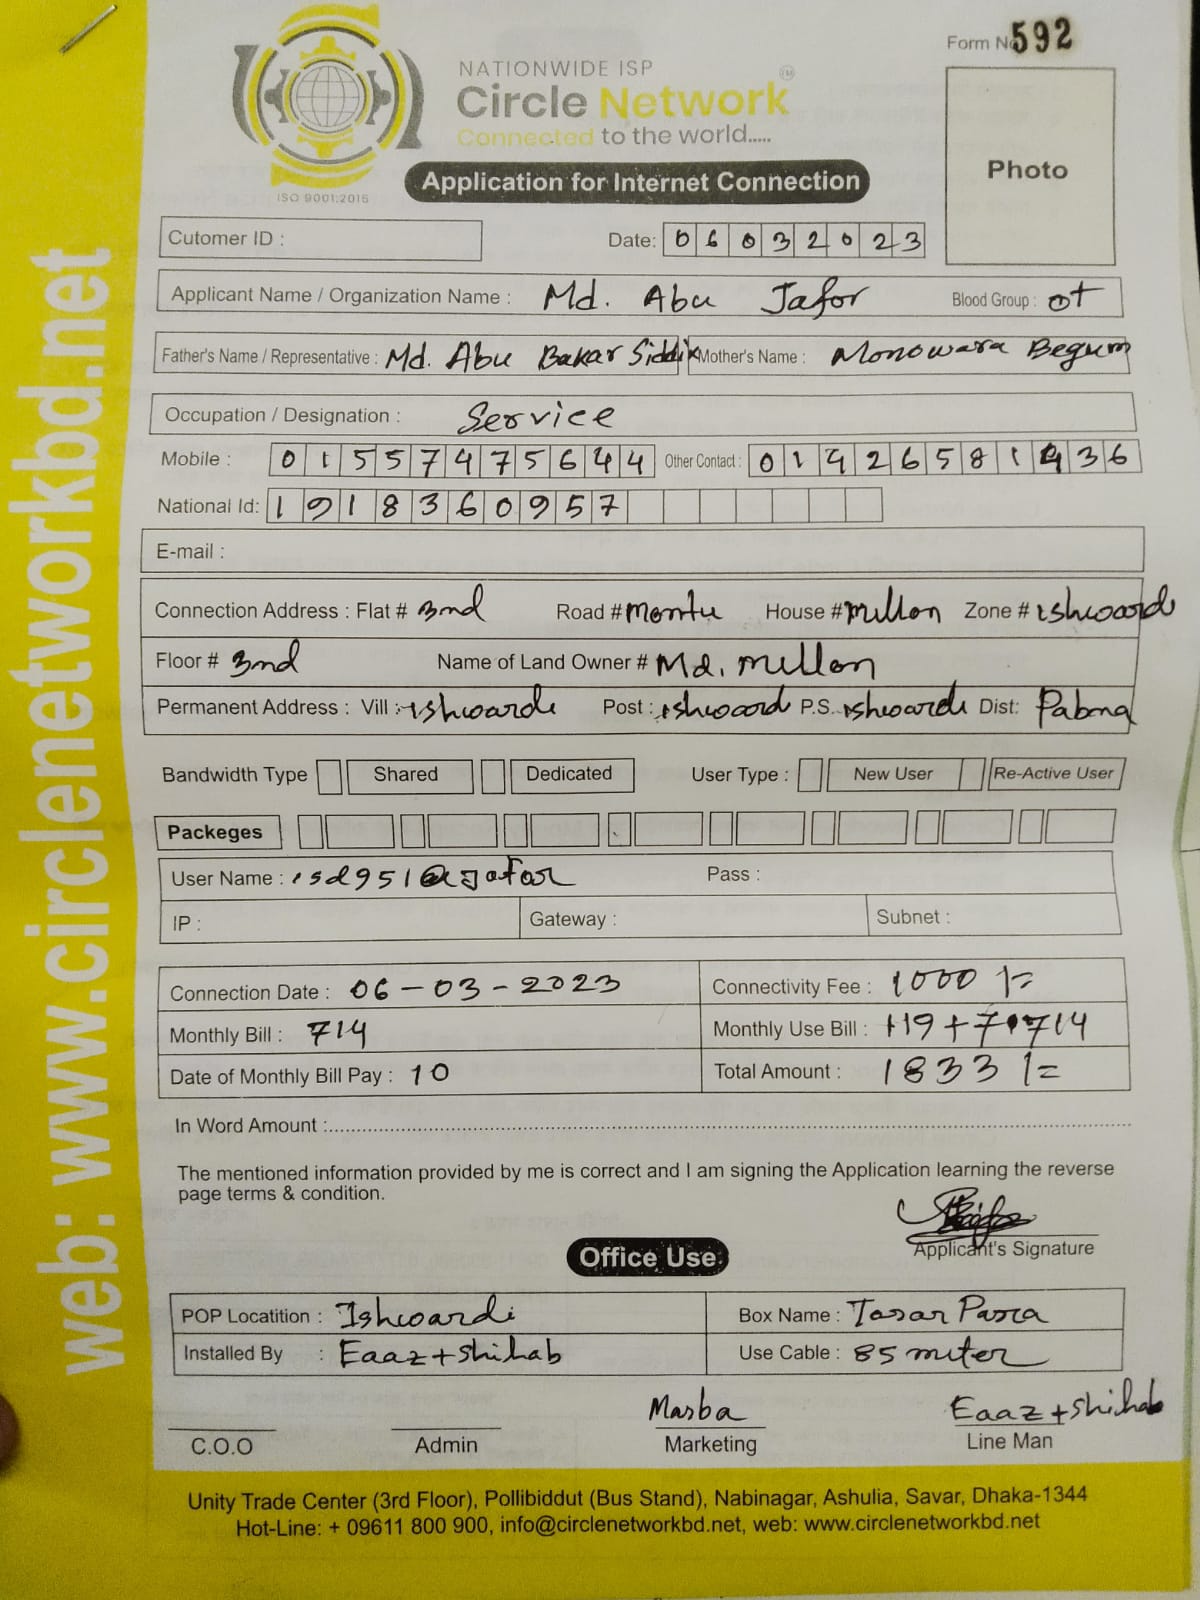 Form No 592
NATIONWIDE ISP
Circle Network TM
Connected to the world.....
ISO 9001:2015
Application for Internet Connection
Photo
Cutomer ID :
Date: 06032023
Applicant Name / Organization Name : Md. Abu Jafor Blood Group : O+
Father's Name / Representative : Md. Abu Bakar Siddik Mother's Name : Monowara Begum
Occupation / Designation : Service
Mobile : 01557475644 Other Contact : 01
National Id: 1918360957
E-mail :
Connection Address : Flat # 3nd Road # House # millon Zone # ishwardi
Floor # 3nd Name of Land Owner # Md. millon
Permanent Address : Vill : ishwardi Post : P.S. ishwardi Dist: Pabna
Bandwidth Type Shared Dedicated User Type : New User Re-Active User
Packeges
User Name : isd951@jafar Pass :
IP : Gateway : Subnet :
Connection Date : 06-03-2023 Connectivity Fee : 1000/=
Monthly Bill : 714 Monthly Use Bill : 119+714
Date of Monthly Bill Pay : 10 Total Amount : 1833/=
In Word Amount :
The mentioned information provided by me is correct and I am signing the Application learning the reverse
page terms & condition.
Applicant's Signature
Office Use
POP Locatition : Ishwardi Box Name :
Installed By : Eaaz+Shihab Use Cable : 85 miter
Eaaz+Shihab
C.O.O Admin Marketing Line Man
Unity Trade Center (3rd Floor), Pollibiddut (Bus Stand), Nabinagar, Ashulia, Savar, Dhaka-1344
Hot-Line: + 09611 800 900, info@circlenetworkbd.net, web: www.circlenetworkbd.net
web: www.circlenetworkbd.net